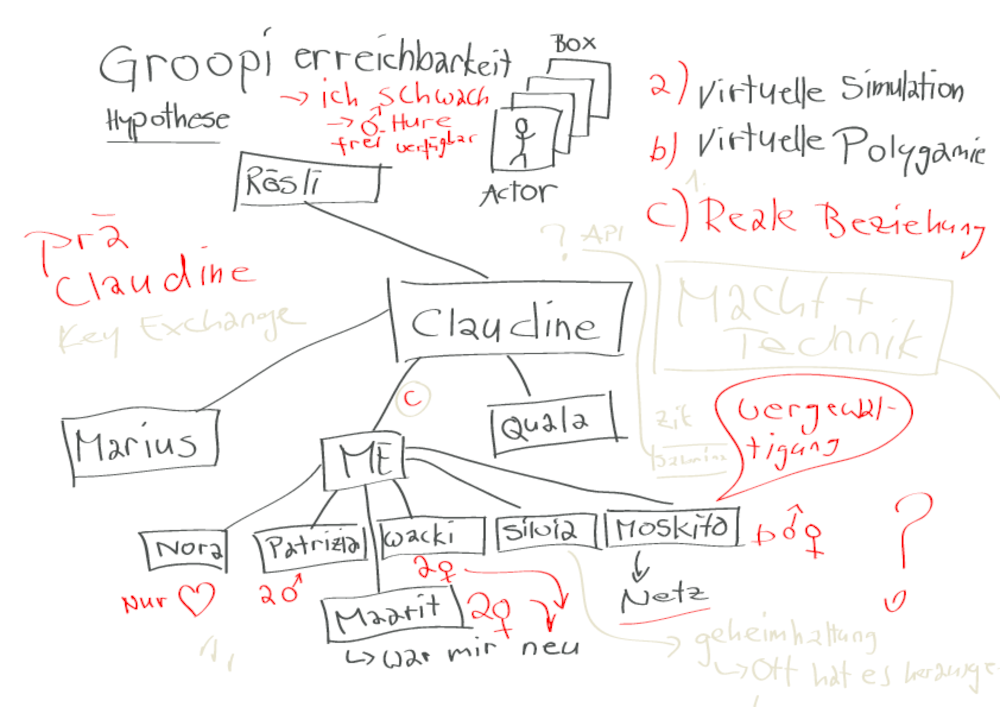 Groopi erreichbarkeit
Hypothese
→ ich schwach
→ ♂ Hure
frei verfügbar
Box
Actor
a) Virtuelle Simulation
b) Virtuelle Polygamie
1.
c) Reale Beziehung
Rösli
prä
Claudine
Key Exchange
? API
Macht +
Technik
Claudine
C
Marius
Quala
ME
zit
vergewal-
tigung
Nora
Patrizia
Wacki
Silvia
Moskito
b ♂ ♀
?
Nur ♡
2 ♂
2 ♀
Maarit
2 ♀
Netz
↳ war mir neu
→ geheimhaltung
↳ Ott hat es